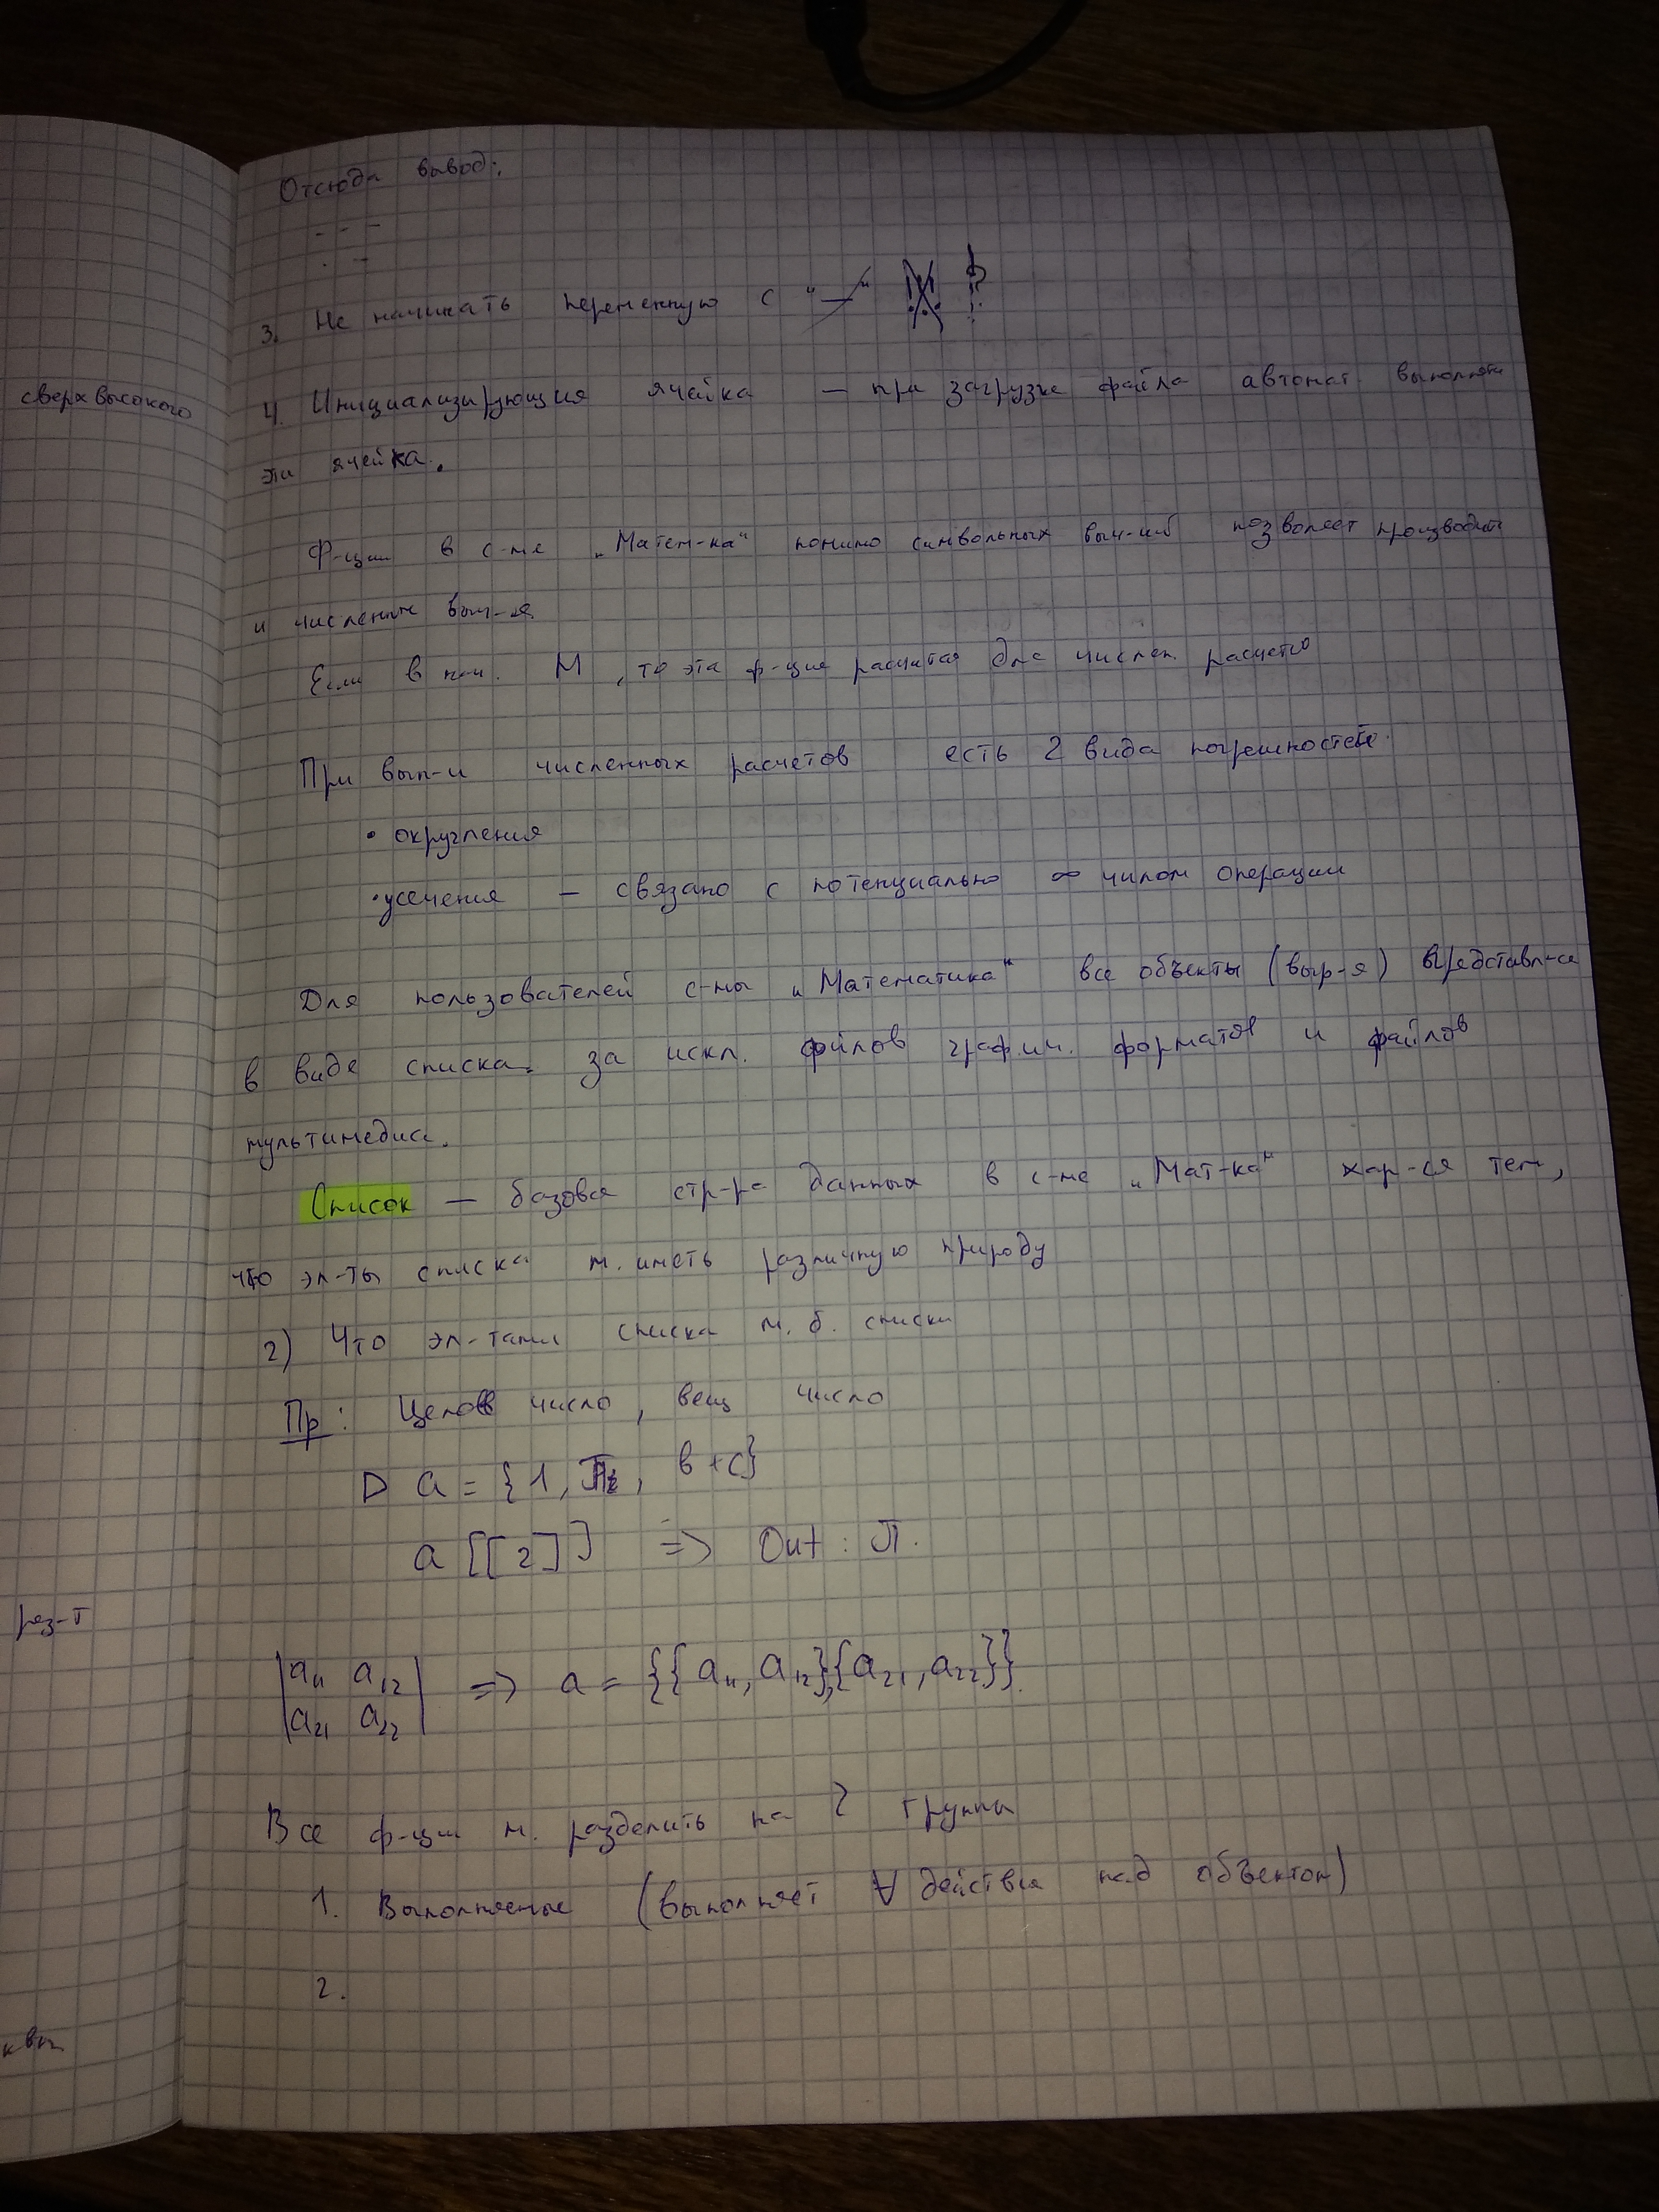 Отсюда вывод:
3. Не начинать переменную с "—"
сверхвысокого
4. Инициализирующия ячейка — при загрузке файла автомат. выполняти
эти ячейка.
Ф-ции в с-ме „Матем-ка“ помимо символьных выч-ий позволяет производить
и численные выч-я
Если в нач. N, то эта ф-ция расчитая для числен. расчетов
При вып-и численных расчетов есть 2 вида погрешностей.
• округления
• усечения — связано с потенциально ∞ числом операции
Для пользователей с-мы „Математика“ все объекты (выр-я) представл-ся
в виде списка. за искл. файлов графич. форматов и файлов
мультимедиа.
Список — базовая стр-ра данных в с-ме „Мат-ка“ хар-ся тем,
что эл-ты списка м. иметь различную природу
2) Что эл-тами списка м. б. списки
Пр: Целое число, вещ число
D a = {1, Pi, b+c}
a [[2]] => Out : π.
рез-т
|a₁₁ a₁₂| => a = {{a₁₁, a₁₂},{a₂₁, a₂₂}}.
|a₂₁ a₂₂|
Все ф-ции м. разделить на 2 группы
1. Выполняемые (выполняет ∀ действия над объектом)
2.